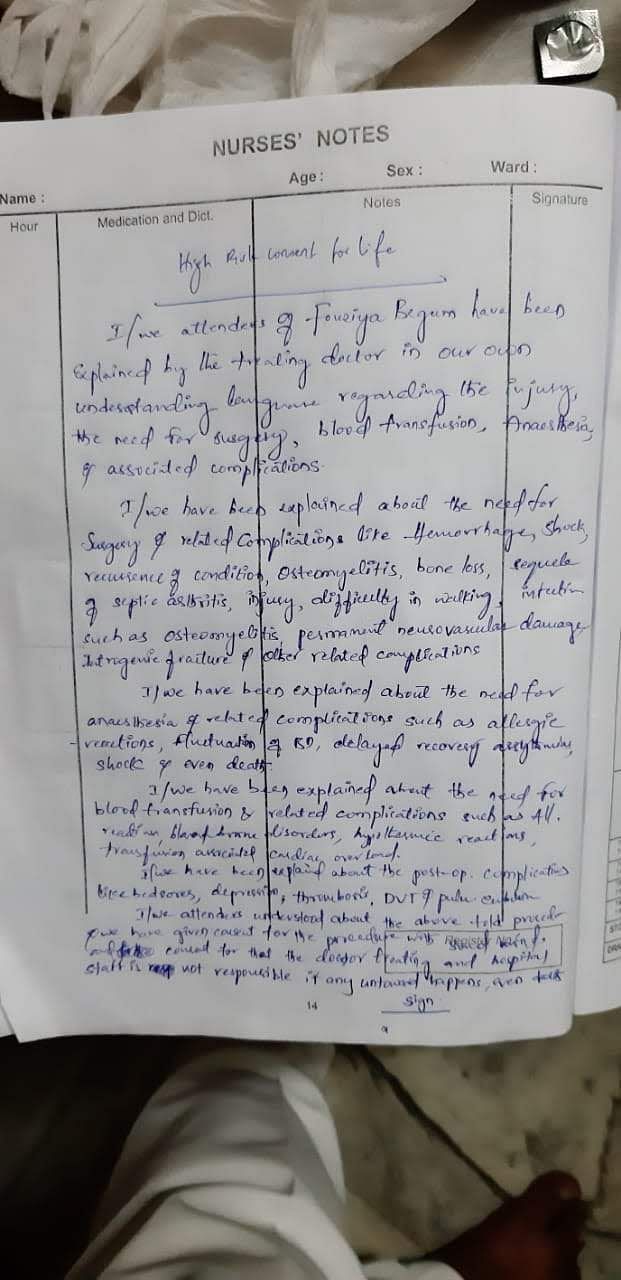 NURSES' NOTES
Age : Sex : Ward :
Name :
Hour Medication and Dict. Notes Signature
High Risk consent for Life
I/we attenders of Fouziya Begum have been
explained by the treating doctor in our own
understanding language regarding the injury,
the need for surgery, blood transfusion, Anaesthesia,
& associated complications.
I/we have been explained about the need for
Surgery & related Complications like Hemorrhage, shock,
recurrence of condition, Osteomyelitis, bone loss, sequele
of septic arthritis, injury, difficulty in walking, infection
such as osteomyelitis, permanent neurovascular damage,
Iatrogenic fracture & other related complications
I/we have been explained about the need for
anaesthesia & related complications such as allergic
reactions, fluctuation of BP, delayed recovery
shock & even death.
I/we have been explained about the need for
blood transfusion & related complications such as All.
reaction, blood borne disorders, reactions,
transfusion associated cardiac overload.
I/we have been explained about the post-op. complications
like bedsores, depression, thrombosis, DVT &
I/we attenders understood about the above told
& we have given consent for the procedure with
consent for that the doctor treating and hospital
staff is not responsible if any untoward happens, even
sign
14